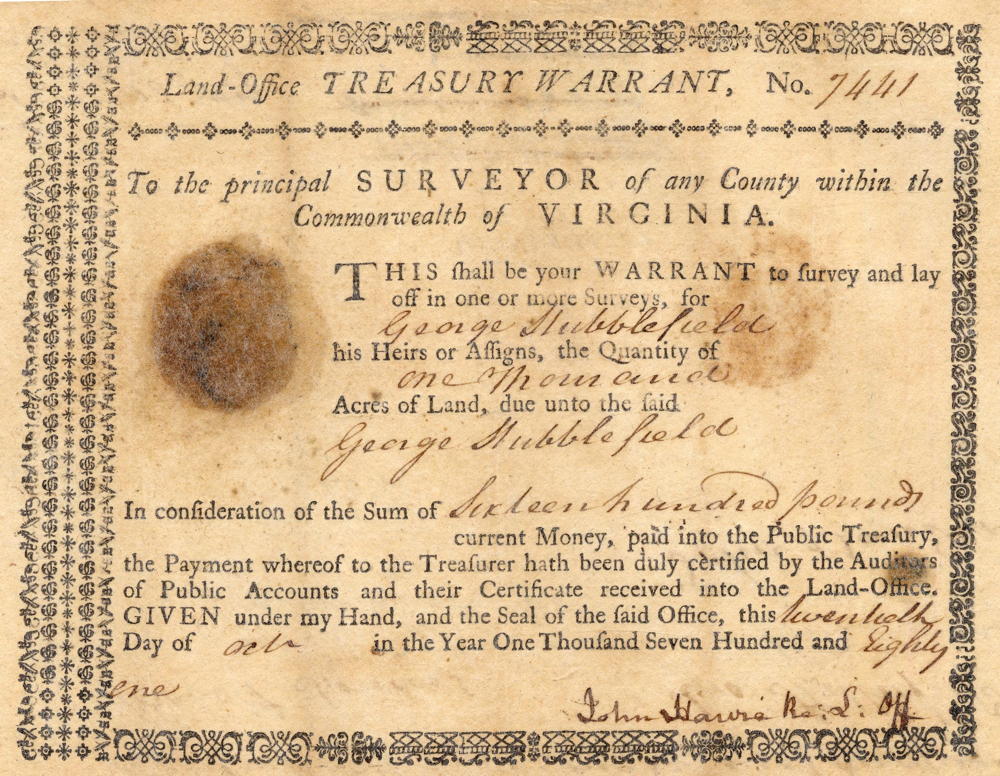 Land-Office TREASURY WARRANT, No. 7441
To the principal SURVEYOR of any County within the
Commonwealth of VIRGINIA.
THIS ſhall be your WARRANT to ſurvey and lay
off in one or more Surveys, for
George Stubblefield
his Heirs or Aſſigns, the Quantity of
one Thousand
Acres of Land, due unto the ſaid
George Stubblefield
In conſideration of the Sum of Sixteen hundred pounds
current Money, paid into the Public Treaſury,
the Payment whereof to the Treaſurer hath been duly certified by the Auditors
of Public Accounts and their Certificate received into the Land-Office.
GIVEN under my Hand, and the Seal of the ſaid Office, this twentieth
Day of octr in the Year One Thouſand Seven Hundred and Eighty
one
John Harvie Re: L. Off